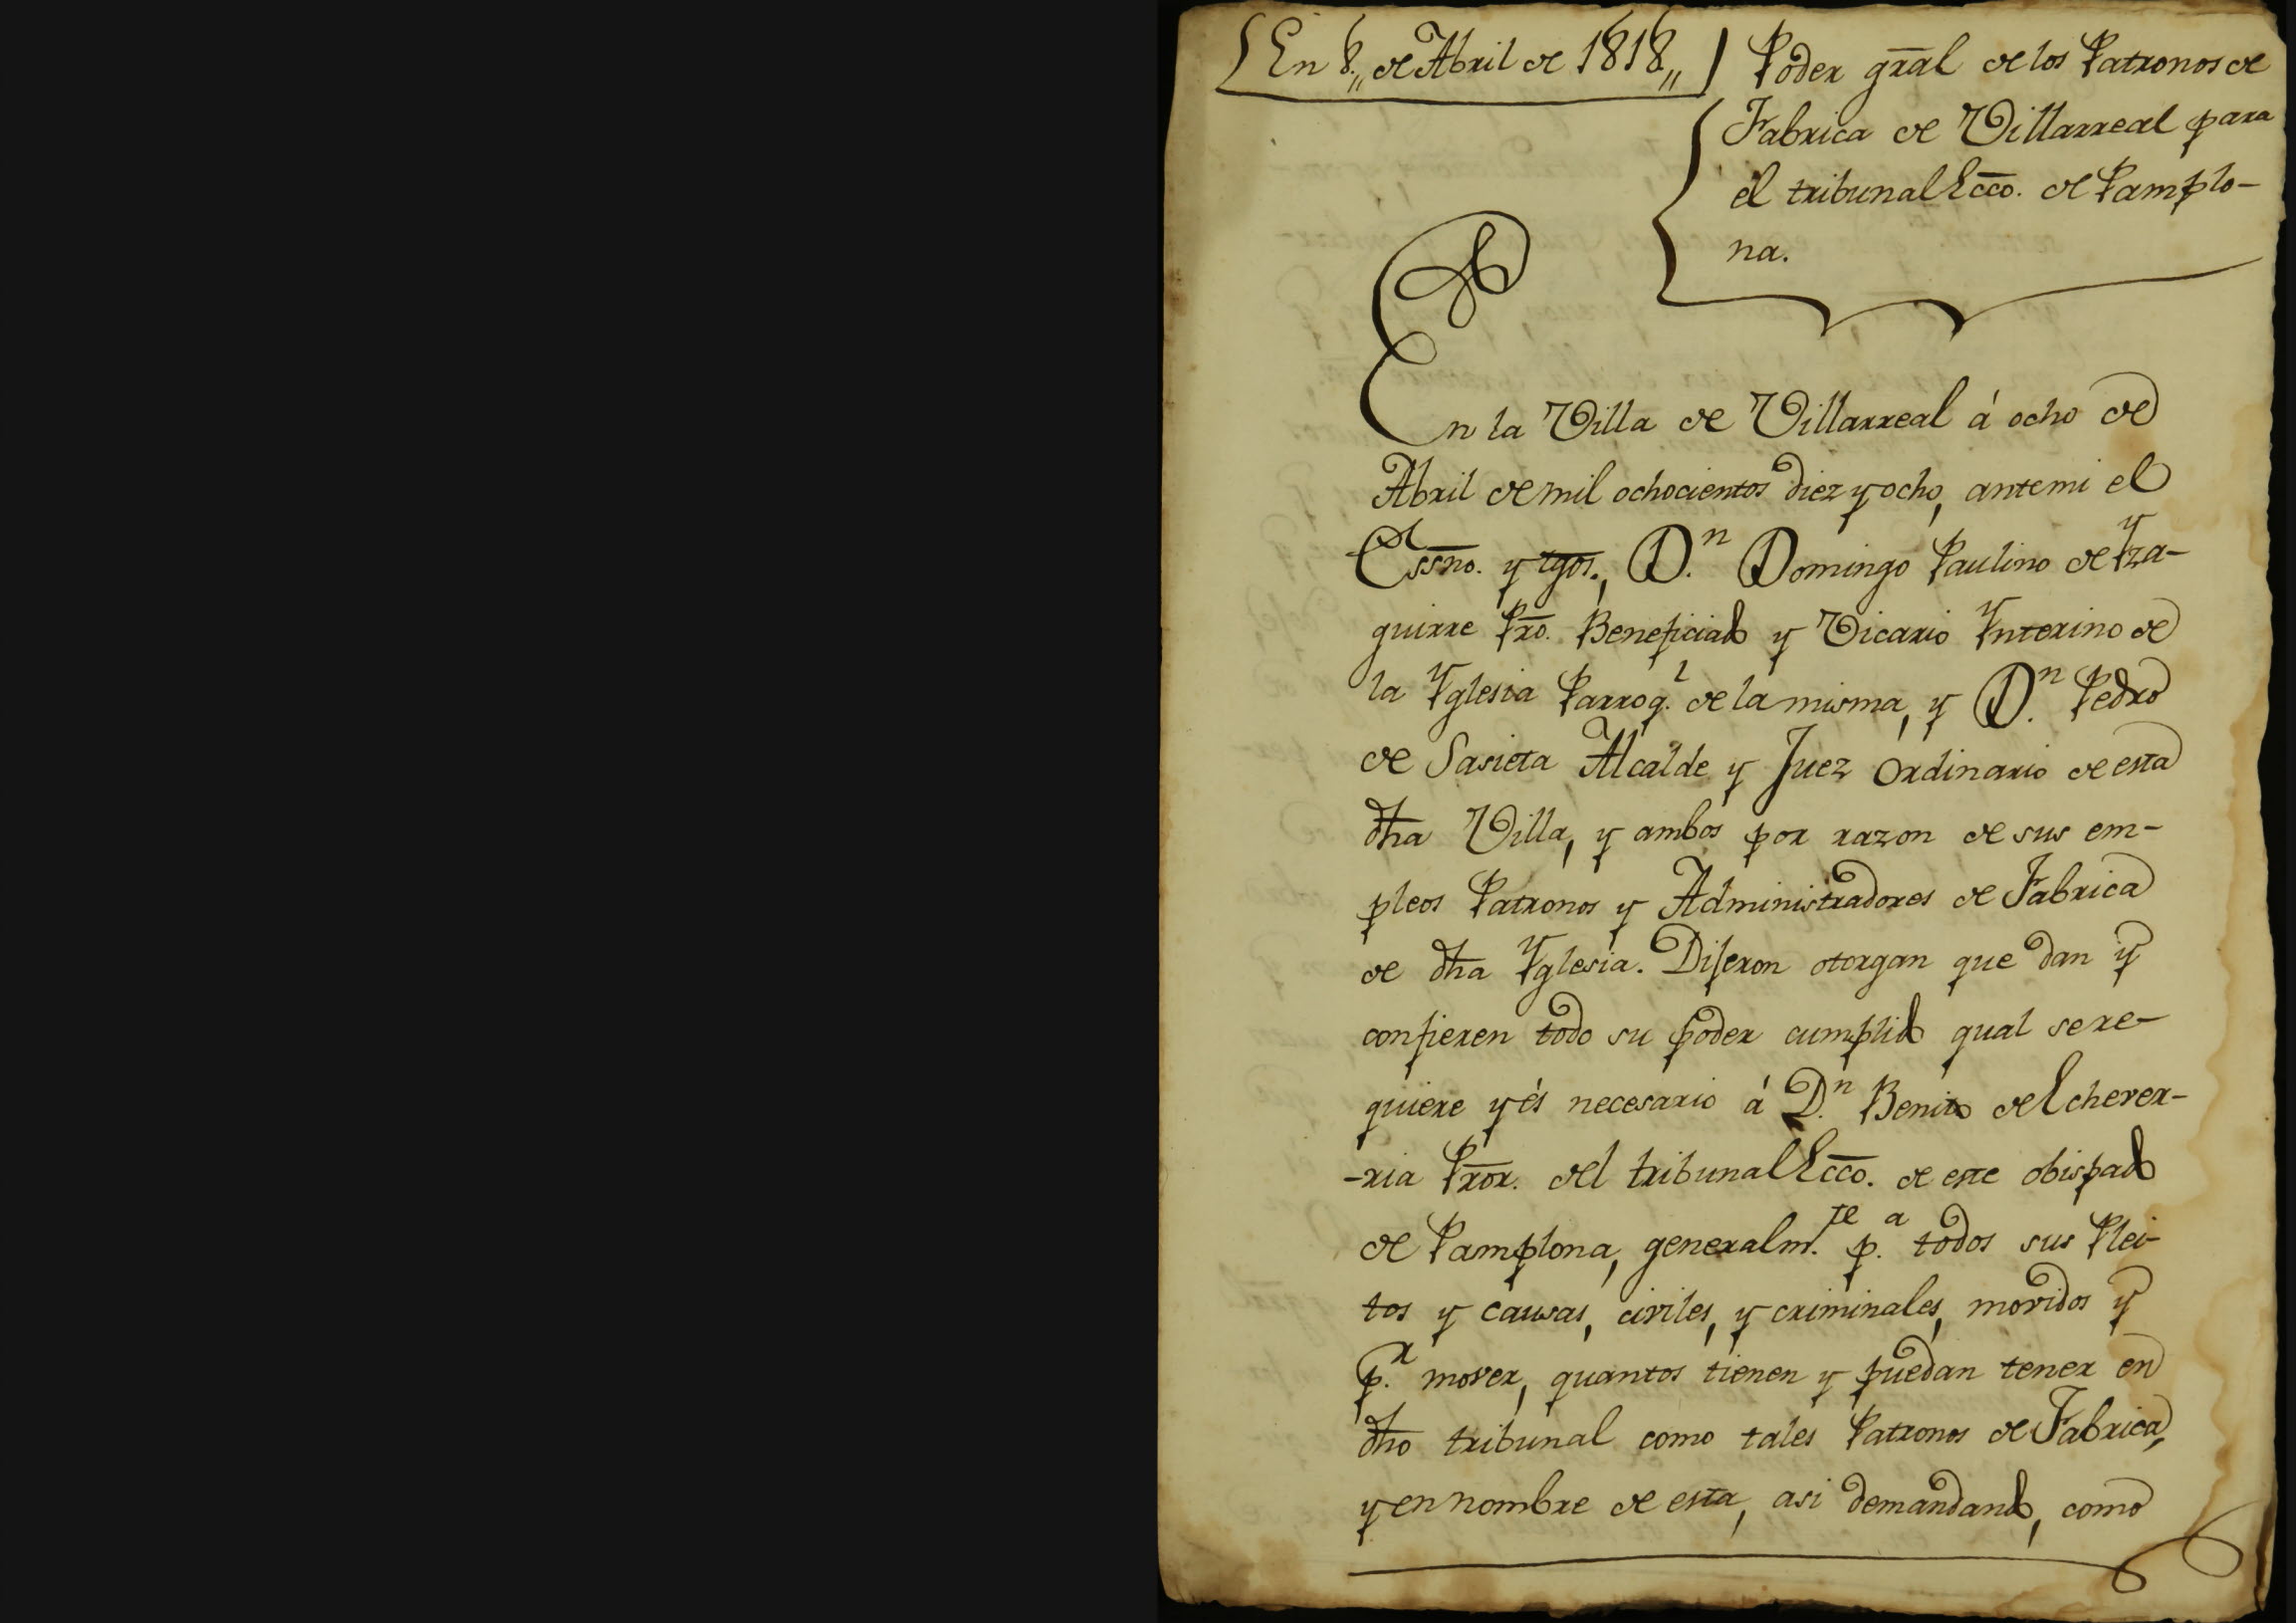 En 8,, de Abril de 1818,,
Poder gral de los Patronos de
Fabrica de Villarreal para
el tribunal Ecco. de Pamplo-
na.
En la Villa de Villarreal á ocho de
Abril de mil ochocientos diez y ocho, ante mi el
Essno. y tgos., D.n Domingo Paulino de Yza-
guirre Pro. Beneficiado y Vicario Ynterino de
la Yglesia Parroq.l de la misma, y D.n Pedro
de Sasieta Alcalde y Juez ordinario de esta
dha Villa, y ambos por razon de sus em-
pleos Patronos y Administradores de Fabrica
de dha Yglesia. Dijeron otorgan que dan y
confieren todo su poder cumplido qual se re-
quiere y és necesario á D.n Benito de Echever-
-ria Pror. del tribunal Ecco. de este obispado
de Pamplona, generalm.te p.a todos sus Plei-
tos y causas, civiles, y criminales, movidos y
p.r mover, quantos tienen y puedan tener en
dho tribunal como tales Patronos de Fabrica,
y en nombre de esta, asi demandando, como